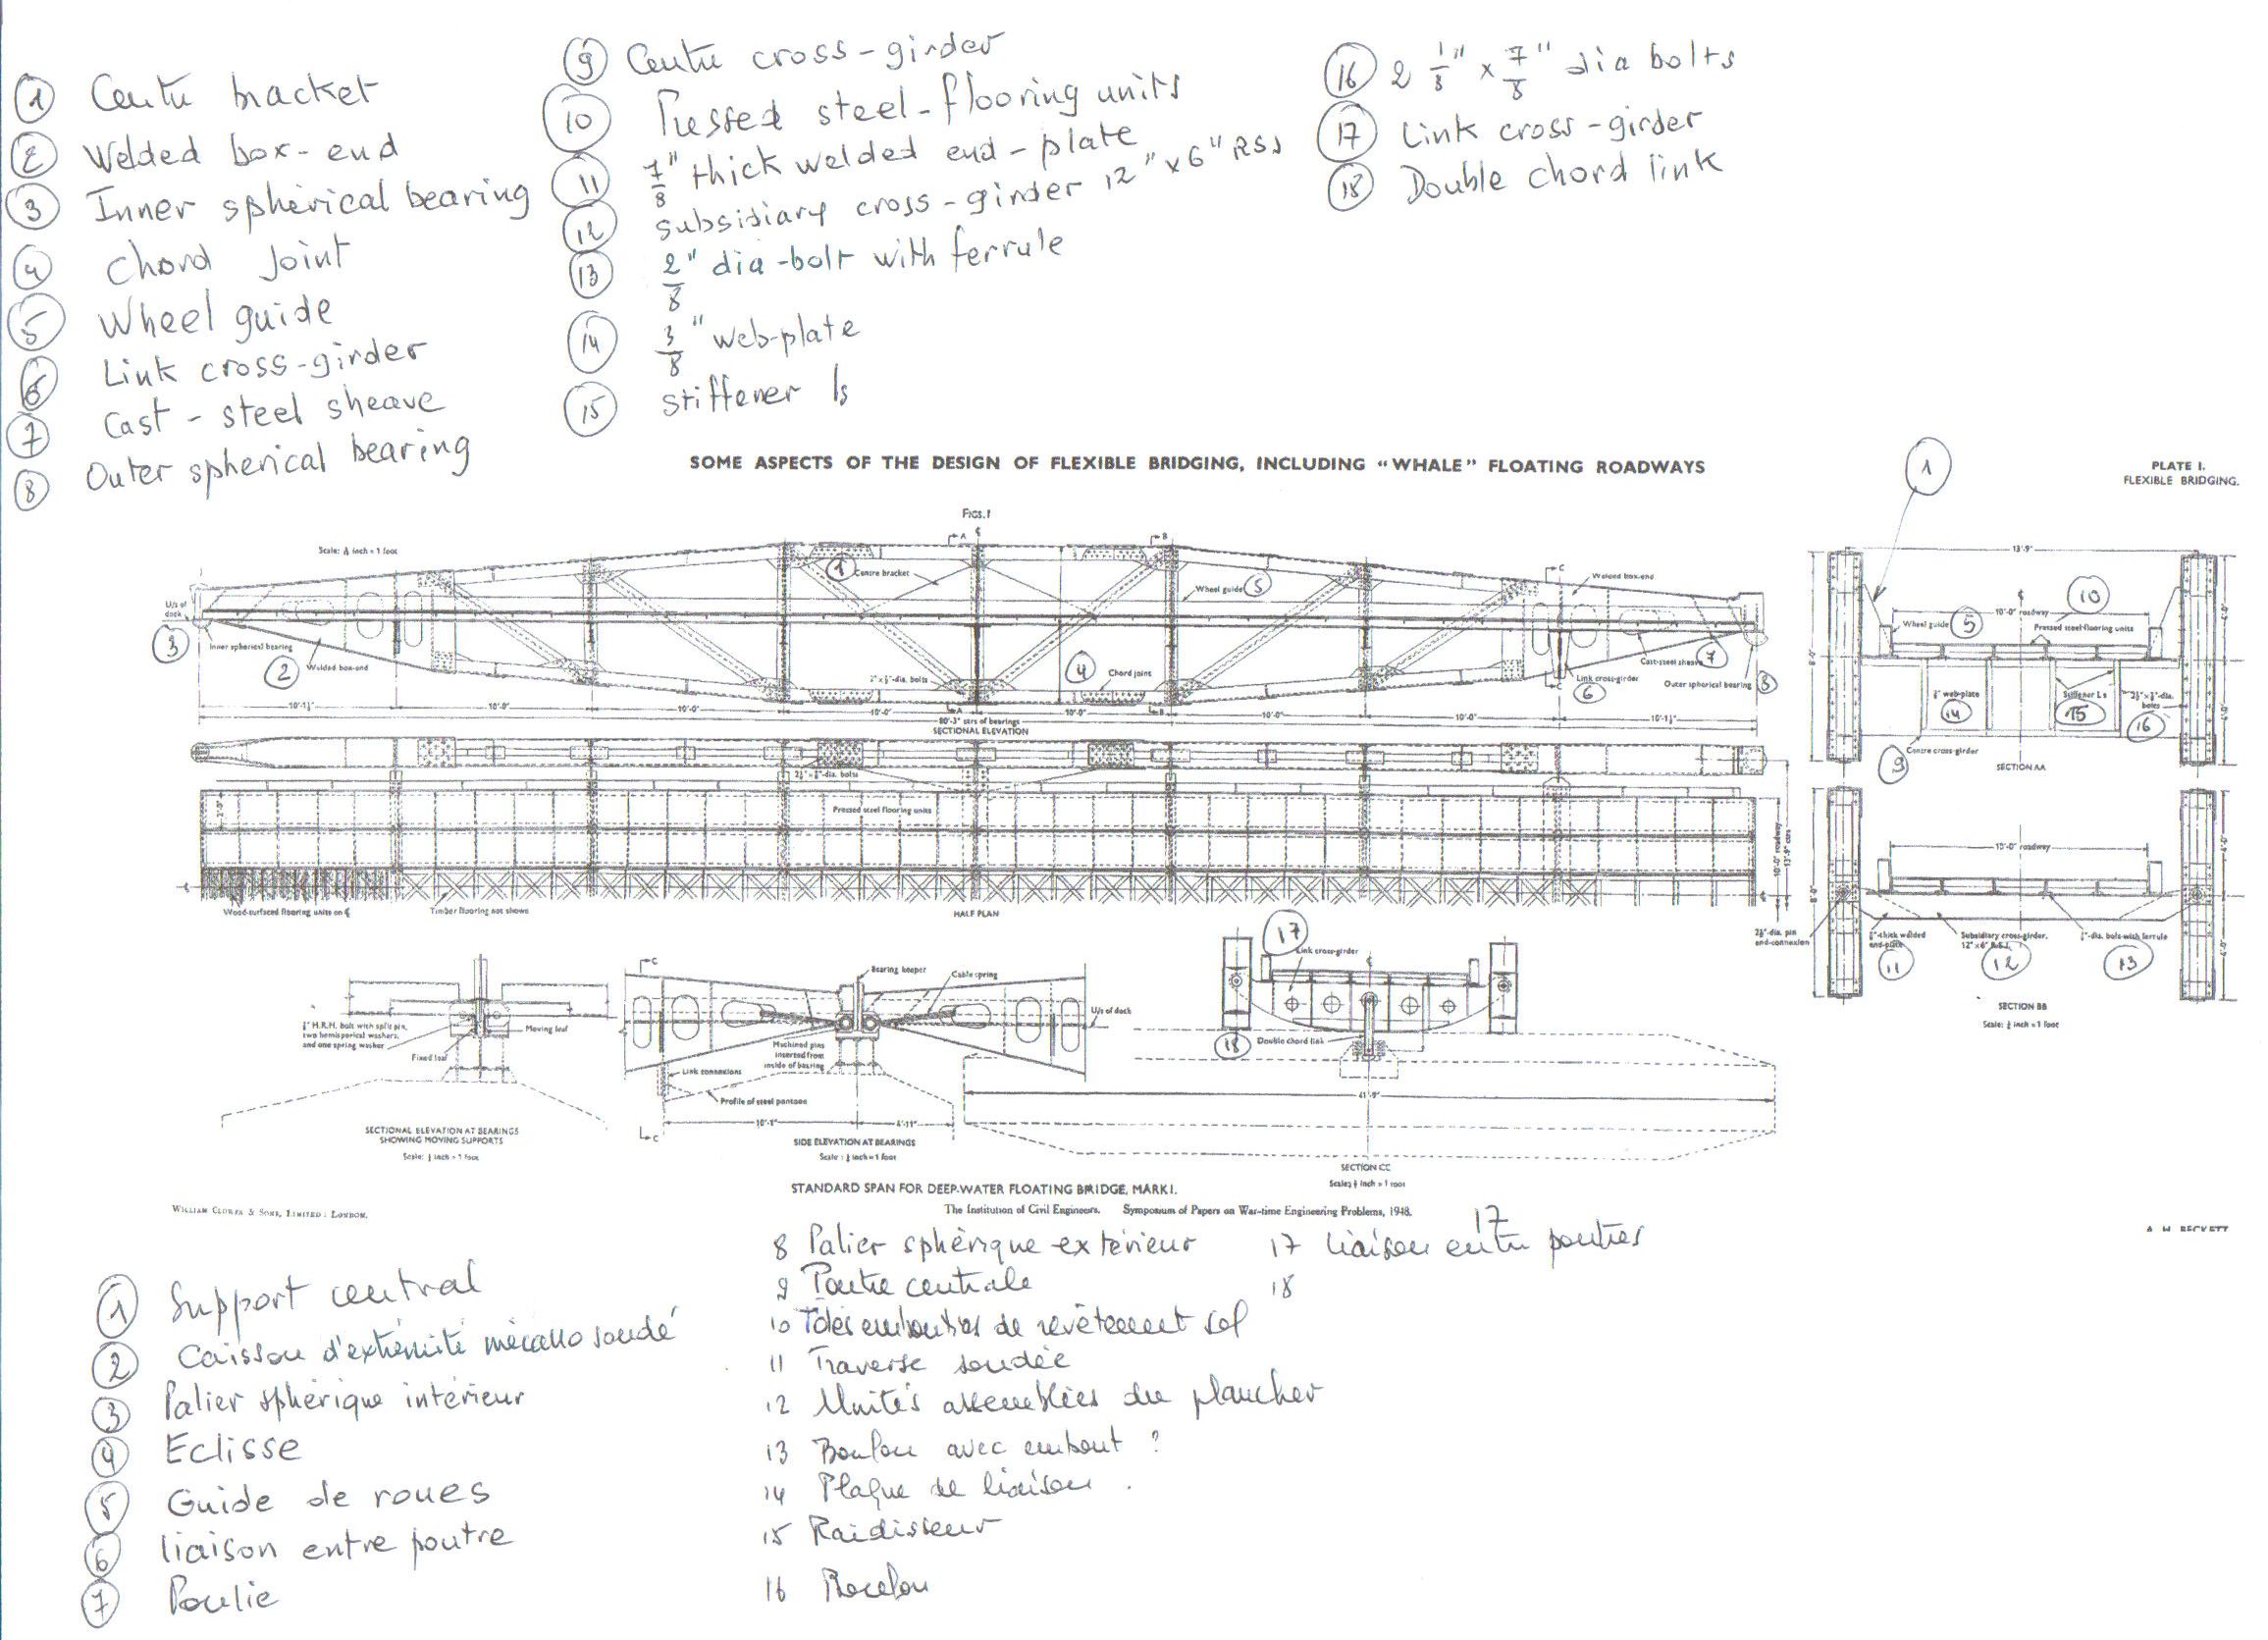 ① Centre bracket
② Welded box-end
③ Inner spherical bearing
④ Chord Joint
⑤ Wheel guide
⑥ Link cross-girder
⑦ Cast-steel sheave
⑧ Outer spherical bearing
⑨ Centre cross-girder
⑩ Pressed steel-flooring units
⑪ 7/8" thick welded end-plate
⑫ subsidiary cross-girder 12" x 6" RSJ
⑬ 2/8" dia-bolt with ferrule
⑭ 3/8" web-plate
⑮ stiffener ls
⑯ 2 1/8" x 7/8" dia bolts
⑰ Link cross-girder
⑱ Double chord link
SOME ASPECTS OF THE DESIGN OF FLEXIBLE BRIDGING, INCLUDING "WHALE" FLOATING ROADWAYS
PLATE I.
FLEXIBLE BRIDGING.
①
FIGS. 1
Scale: inch = 1 foot
A
B
C
U/s of deck
③
Inner spherical bearing
②
Welded box-end
①
Centre bracket
Wheel guide ⑤
Welded box-end
④
Chord joint
-dia. bolts
Cast-steel sheave ⑦
Link cross-girder
⑥
Outer spherical bearing ⑧
10'-1½"
10'-0"
10'-0"
10'-0"
10'-0"
10'-0"
10'-0"
10'-1½"
80'-3" ctrs of bearings
SECTIONAL ELEVATION
-dia. bolts
Pressed steel flooring units
2'-0"
10'-0" roadway
13'-9" ctrs
Wood-surfaced flooring units on
Timber flooring not shown
HALF PLAN
13'-9"
⑩
10'-0" roadway
Wheel guide ⑤
Pressed steel-flooring units
8'-0"
4'-0"
4'-0"
web-plate
⑭
Stiffener Ls
⑮
-dia. bolts
⑯
⑨
Centre cross-girder
SECTION AA
10'-0" roadway
8'-0"
4'-0"
4'-0"
-dia. pin end-connexion
-thick welded end-plate
⑪
Subsidiary cross-girder, 12"x6" R.S.J.
⑫
-dia. bolt with ferrule
⑬
SECTION BB
Scale: inch = 1 foot
H.R.H. bolt with split pin, two hemispherical washers, and one spring washer
Fixed leaf
Moving leaf
SECTIONAL ELEVATION AT BEARINGS
SHOWING MOVING SUPPORTS
Scale: inch = 1 foot
C
Bearing keeper
Cable spring
U/s of deck
Machined pins inserted from inside of bearing
Link connexions
Profile of steel pontoon
10'-1"
4'-11"
C
SIDE ELEVATION AT BEARINGS
Scale: inch = 1 foot
⑰
Link cross-girder
⑱
Double chord link
41'-9"
SECTION CC
Scale: inch = 1 foot
STANDARD SPAN FOR DEEP-WATER FLOATING BRIDGE, MARK I.
WILLIAM CLOWES & SONS, LIMITED: LONDON.
The Institution of Civil Engineers. Symposium of Papers on War-time Engineering Problems, 1948.
A. H. BECKETT
① Support central
② Caisson d'extrémité mécano soudé
③ Palier sphérique intérieur
④ Eclisse
⑤ Guide de roues
⑥ liaison entre poutre
⑦ Poulie
8 Palier sphérique extérieur
9 Poutre centrale
10 Tôles embouties de revêtement sol
11 Traverse soudée
12 Unités assemblées du plancher
13 Boulon avec embout ?
14 Plaque de liaison.
15 Raidisseur
16 Boulon
17
17 liaison entre poutres
18